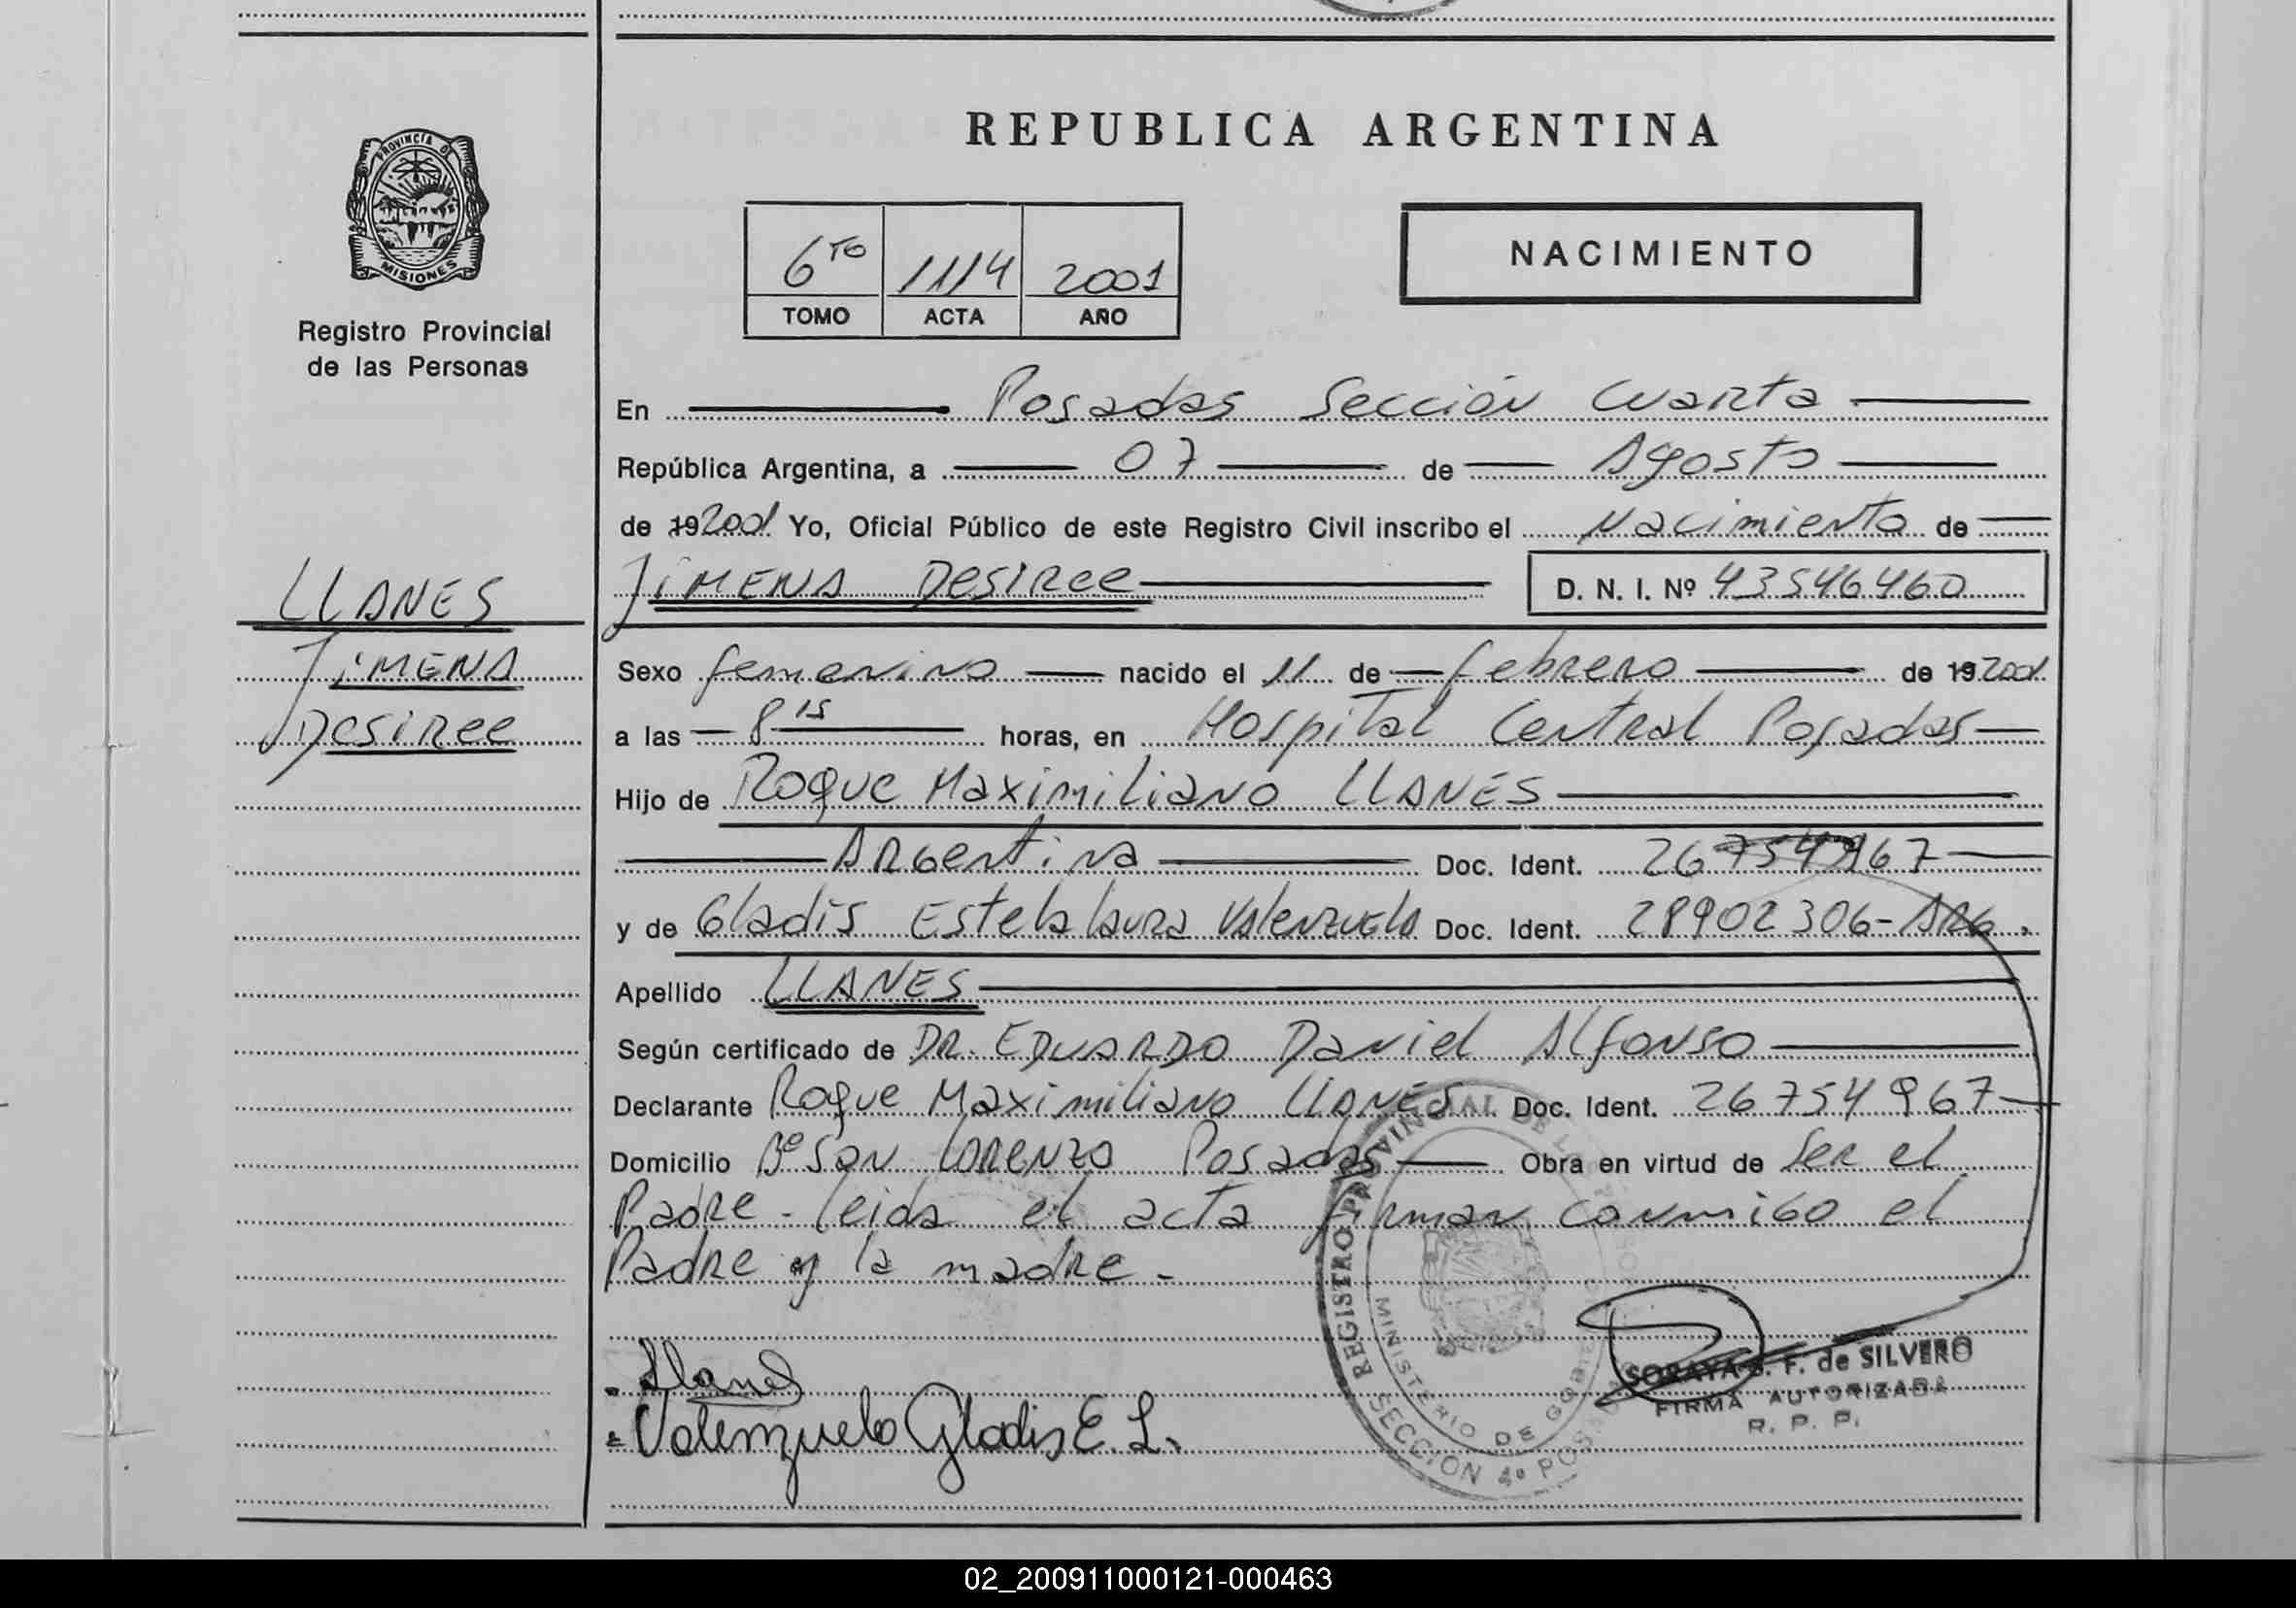 REPUBLICA ARGENTINA
PROVINCIA DE
MISIONES
Registro Provincial
de las Personas
6TO 1114 2001
TOMO ACTA AÑO
NACIMIENTO
En Posadas Sección Cuarta
República Argentina, a 07 de Agosto
de 192001 Yo, Oficial Público de este Registro Civil inscribo el Nacimiento de
LLANES
JiMENA DesiRee D. N. I. Nº 43546460
JiMENA
DesiRee
Sexo femenino nacido el 11 de febrero de 192001
a las 8 15 horas, en Hospital Central Posadas
Hijo de Roque Maximiliano LLANES
ARGentina Doc. Ident. 26754967
y de Gladis Estela laura Valenzuela Doc. Ident. 28902306-ARG.
Apellido LLANES
Según certificado de DR. EDUARDO Daniel Alfonso
Declarante Roque Maximiliano LLANES Doc. Ident. 26754967
Domicilio Bº San LORENZO Posadas Obra en virtud de Ser el
Padre - leida el acta firman conmigo el
Padre y la madre -
Llanes
Valenzuela Gladis E. L.
REGISTRO PROVINCIAL DE
MINISTERIO DE GOBIERNO
SECCION 4º POSADAS
SORAYA F. de SILVERO
FIRMA AUTORIZADA
R. P. P.
02_200911000121-000463